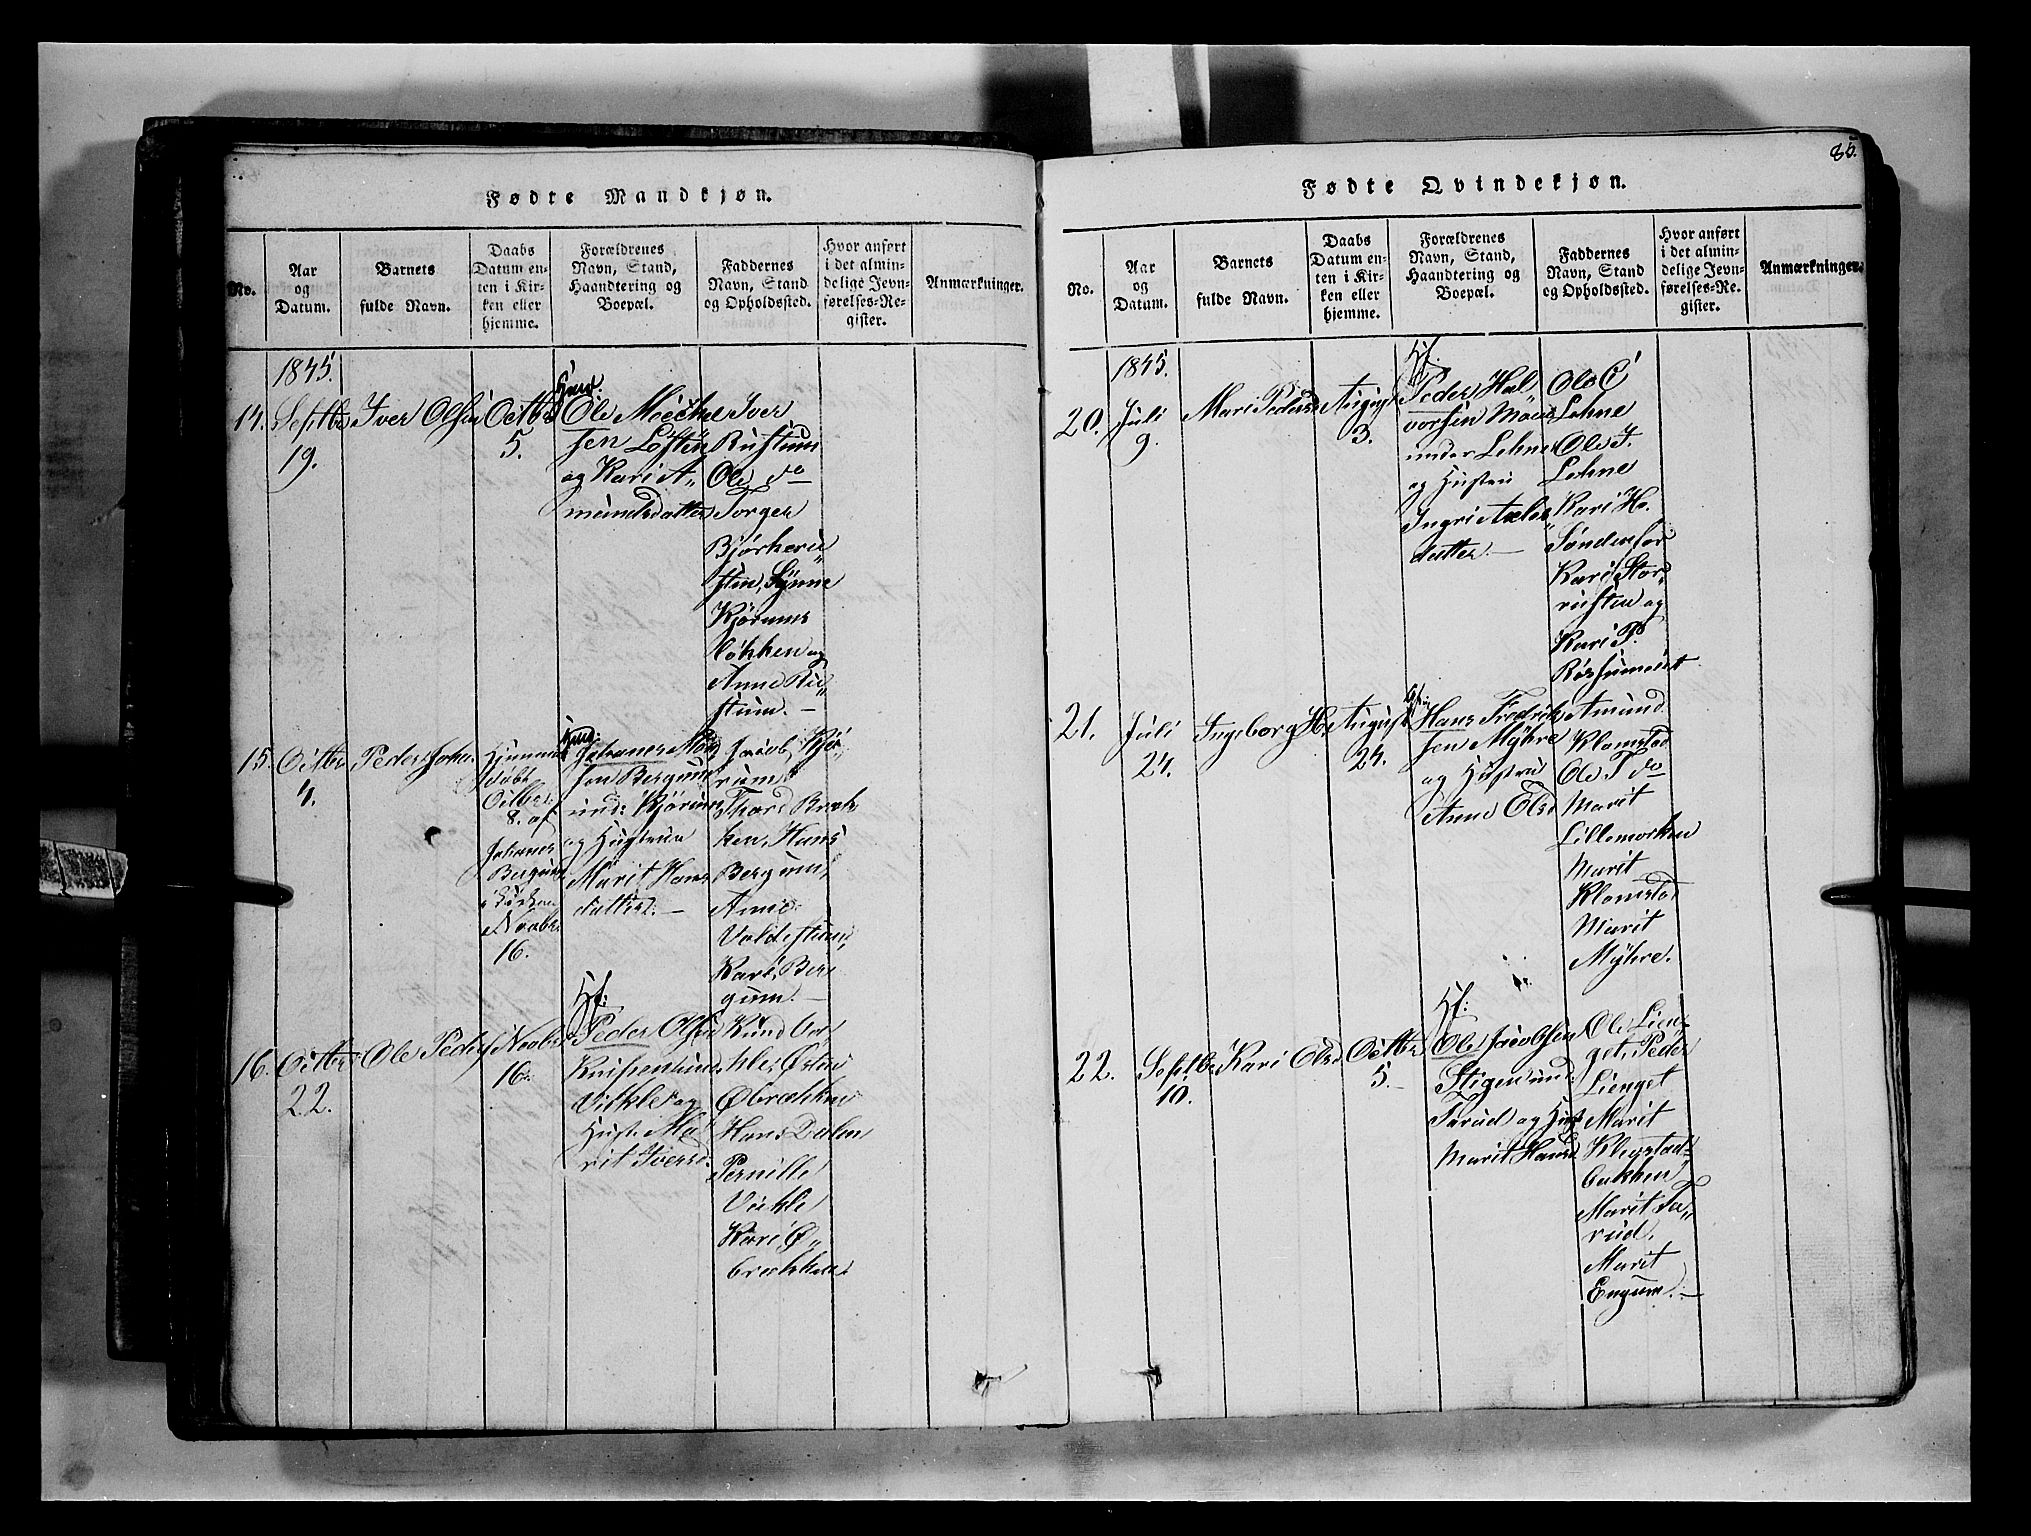 Fødte Mandkjøn.
No.
Aar
og
Datum.
Barnets
fulde Navn.
Daabs
Datum en-
ten i Kir-
ken eller
hjemme.
Forældrenes
Navn, Stand,
Haandtering og
Boepæl.
Faddernes
Navn, Stand
og Opholdssted.
Hvor anført
i det almin-
delige Jevn-
førelses-Re-
gister.
Anmærkninger.
1845.
14.
Septbr
19.
Iver Olsen
Octbr
5.
Ole
sen
og Kari A„
mundsdatter
Iver
Rustum
Ole do
Torger
Bjørkeru„
sten, Synne
Kjørums
løkken og
Anne Ru„
stum. —
15.
Octbr
4.
Peder Joha.
Hjemme
døbt
Octbr.
8. af
Johannes
Bergum
Novbr.
16.
Johannes
sen Bergum
und: Kjørum
og Hustrue
Marit Hans
datter. —
Jacob Kjø
rum
Thord Bræk
ken, Hans
Bergum,
Anne
Voldestuen,
Kari Ber
gum. —
16.
Octbr
22.
Ole Peders
Novbr
16.
Hf:
Peder Olsen
Vikle og
Hust. Ma
rit Iversd.
Øbrækken
Hans Dalen
Pernille
Vikle
Kari Ø„
brækken.
85.
Fødte Qvindekjøn.
No.
Aar
og
Datum.
Barnets
fulde Navn.
Daabs
Datum en-
ten i Kir-
ken eller
hjemme.
Forældrenes
Navn, Stand,
Haandtering og
Boepæl.
Faddernes
Navn, Stand
og Opholdssted.
Hvor anført
i det almin-
delige Jevn-
førelses-Re-
gister.
Anmærkninger.
1845.
20.
Juli
9.
Mari Pedersd
August
3.
Hf.
Peder Hal
vorsen
under Lehne
og Hustru
Ingri
datter. —
Ole
Lehne
Ole J.
Lehne
Kari H.
Søndenfor
Kari Stor„
rusten og
Kari P.
21.
Juli
24.
Ingeborg H.
August
24.
Hans Fredrik
sen Myhre
og Hustru
Anne Olsd
Amund
Klomstad
Ole T. do
Marit
Lillemorken
Marit
Klomstad
Marit
Myhre.
22.
Septbr
10.
Kari Olsd
Octbr
5. —
Hf:
Ole Jacobsen
Stigen und:
Forud og Hust
Marit Hansd
Ole Lien„
get, Peder
Lienget
Marit
bakken,
Marit Fo„
rud,
Marit
Engum. —